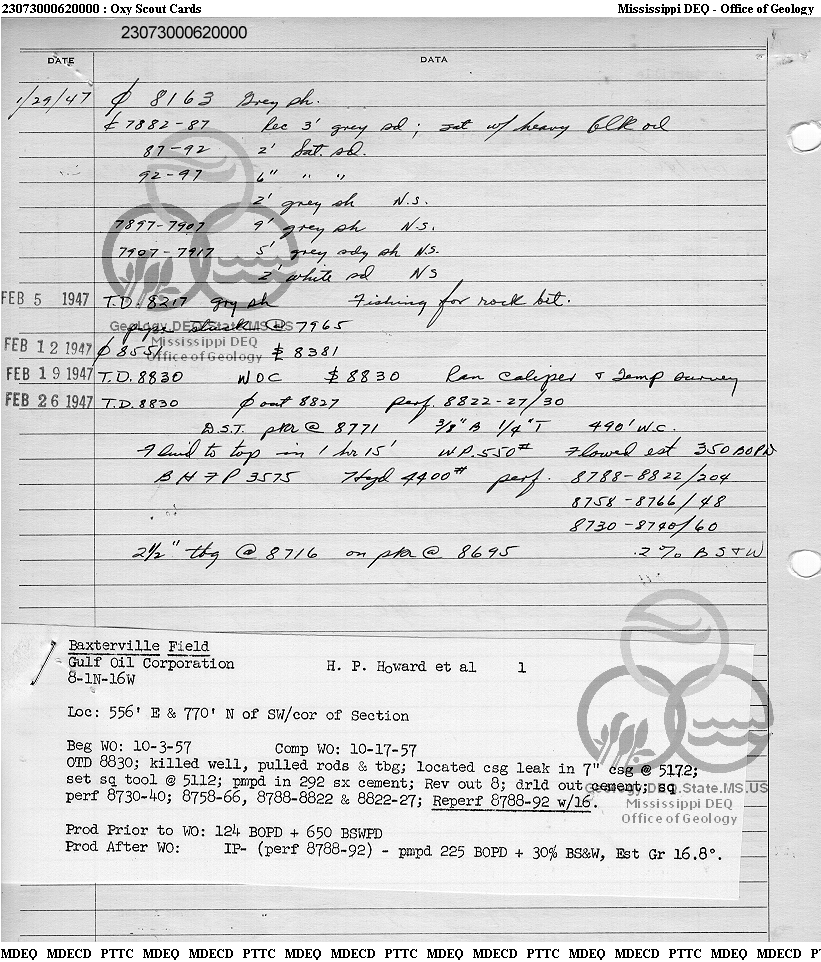 23073000620000 : Oxy Scout Cards Mississippi DEQ - Office of Geology
23073000620000
DATE DATA
1/29/47 ϕ 8163 Grey sh.
¢ 7882-87 Rec 3' grey sd; sat w/ heavy blk oil
87-92 2' Sat. sd.
92-97 6" " "
2' grey sh N.S.
7897-7907 9' grey sh N.S.
7907-7917 5' grey sdy sh NS.
2' white sd NS
FEB 5 1947 T.D. 8217 gry sh Fishing for rock bit.
Geology.DEQ.State.MS.US
pipe stuck @ 7965
Mississippi DEQ
FEB 12 1947 ϕ 8551 8381
Office of Geology
FEB 19 1947 T.D. 8830 WOC $ 8830 Ran Caliper & Temp survey
FEB 26 1947 T.D. 8830 ϕ out 8827 perf. 8822-27/30
D.S.T. pkr @ 8771 3/8" B 1/4" T 490' W.C.
Fluid to top in 1 hr 15' W.P. 550# Flowed est 350 BOPD
B H F P 3575 Hyd 4400# perf. 8788-8822/204
8758-8766/48
8730-8740/60
2½" tbg @ 8716 on pkr @ 8695 .2% B S & W
Baxterville Field
Gulf Oil Corporation H. P. Howard et al 1
8-1N-16W
Loc: 556' E & 770' N of SW/cor of Section
Beg WO: 10-3-57 Comp WO: 10-17-57
OTD 8830; killed well, pulled rods & tbg; located csg leak in 7" csg @ 5172;
set sq tool @ 5112; pmpd in 292 sx cement; Rev out 8; drld out cement; sq
perf 8730-40; 8758-66, 8788-8822 & 8822-27; Reperf 8788-92 w/16.
Geology.DEQ.State.MS.US
Mississippi DEQ
Office of Geology
Prod Prior to WO: 124 BOPD + 650 BSWPD
Prod After WO: IP- (perf 8788-92) - pmpd 225 BOPD + 30% BS&W, Est Gr 16.8°.
MDEQ MDECD PTTC MDEQ MDECD PTTC MDEQ MDECD PTTC MDEQ MDECD PTTC MDEQ MDECD PTTC MDEQ MDECD PTTC MDEQ MDECD P